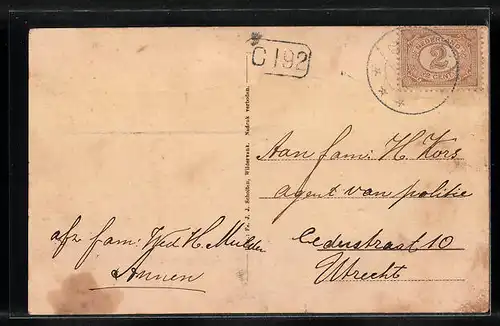 C 192
NEDERLAND
2
CENT
Aan fam: H. Kors
agent van politie
Cederstraat 10
Utrecht
afz fam: Wed H. Mulder
Annen
Fa. J. J. Scholten, Wildervank. Nadruk verboden.